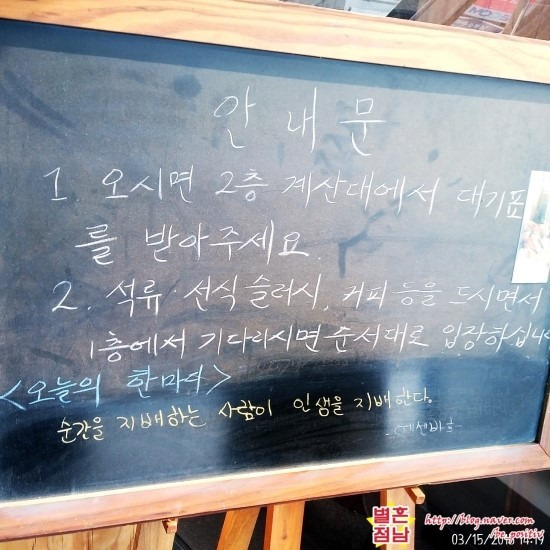 안내문
1 오시면 2층 계산대에서 대기표
를 받아주세요.
2. 석류·선식 슬러시, 커피 등을 드시면서
1층에서 기다리시면 순서대로 입장하십니
<오늘의 한마디>
순간을 지배하는 사람이 인생을 지배한다.
별혼
점남
http://blog.naver.com
/be_positiv
03/15/2016 14:19